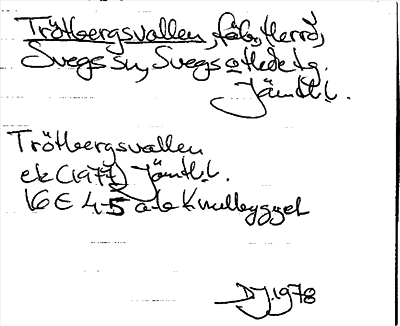 Trötbergsvallen, fäb, Herrö,
Svegs sn, Svegs
Jämtl.l.
Trötbergsvallen
ek (1977) Jämtl.l.
16E 4-5 a-b Knullbygget
DJ.1978